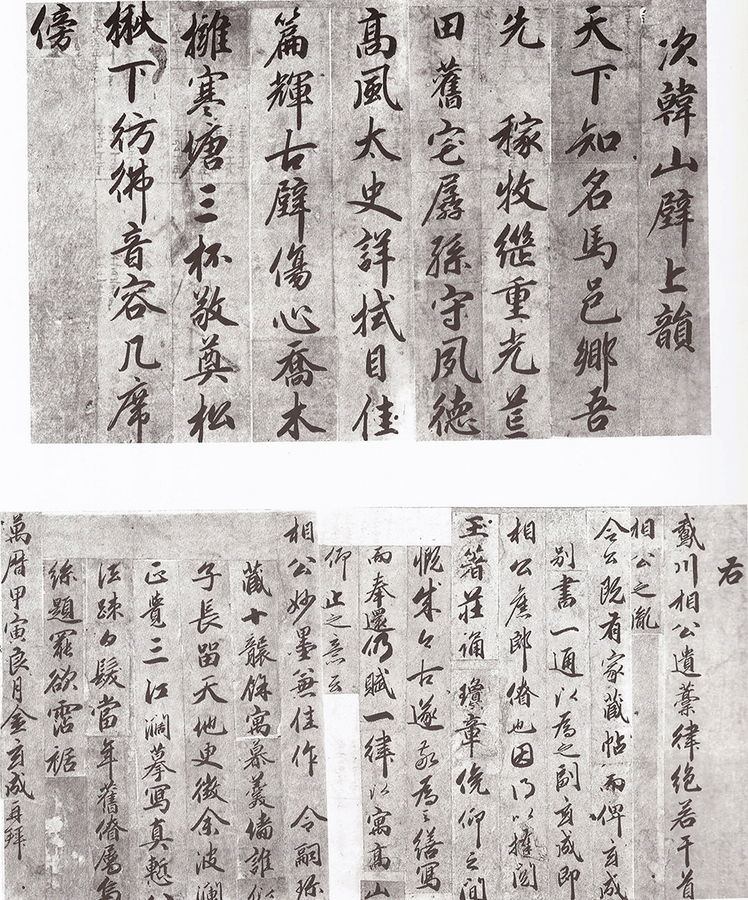 次韓山壁上韻
天下知名馬邑鄉吾
先 稼牧繼重光芒
田舊宅孱孫守夙德
高風太史詳拭目佳
篇輝古壁傷心喬木
擁寒塘三杯敬奠松
楸下彷彿音容几席
傍
右
戴川相公遺藁律絕若干首
相公之胤
令公旣有家藏帖而俾玄成
別書一通以爲之副玄成卽
相公舊郎僚也因得以擁閱
玉箸莊誦 瓊章俛仰之間
慨成今古遂敬爲之繕寫
而奉還仍賦一律以寓高山
仰止之意云
相公妙墨兼佳作 令嗣珍
藏十襲餘寓慕羹墻誰似
子長留天地更徵余波瀾
正貴三江濶摹寫眞慙
江疎白髮當年舊僚屬烏
絲題罷欲霑裾
萬曆甲寅良月金玄成再拜